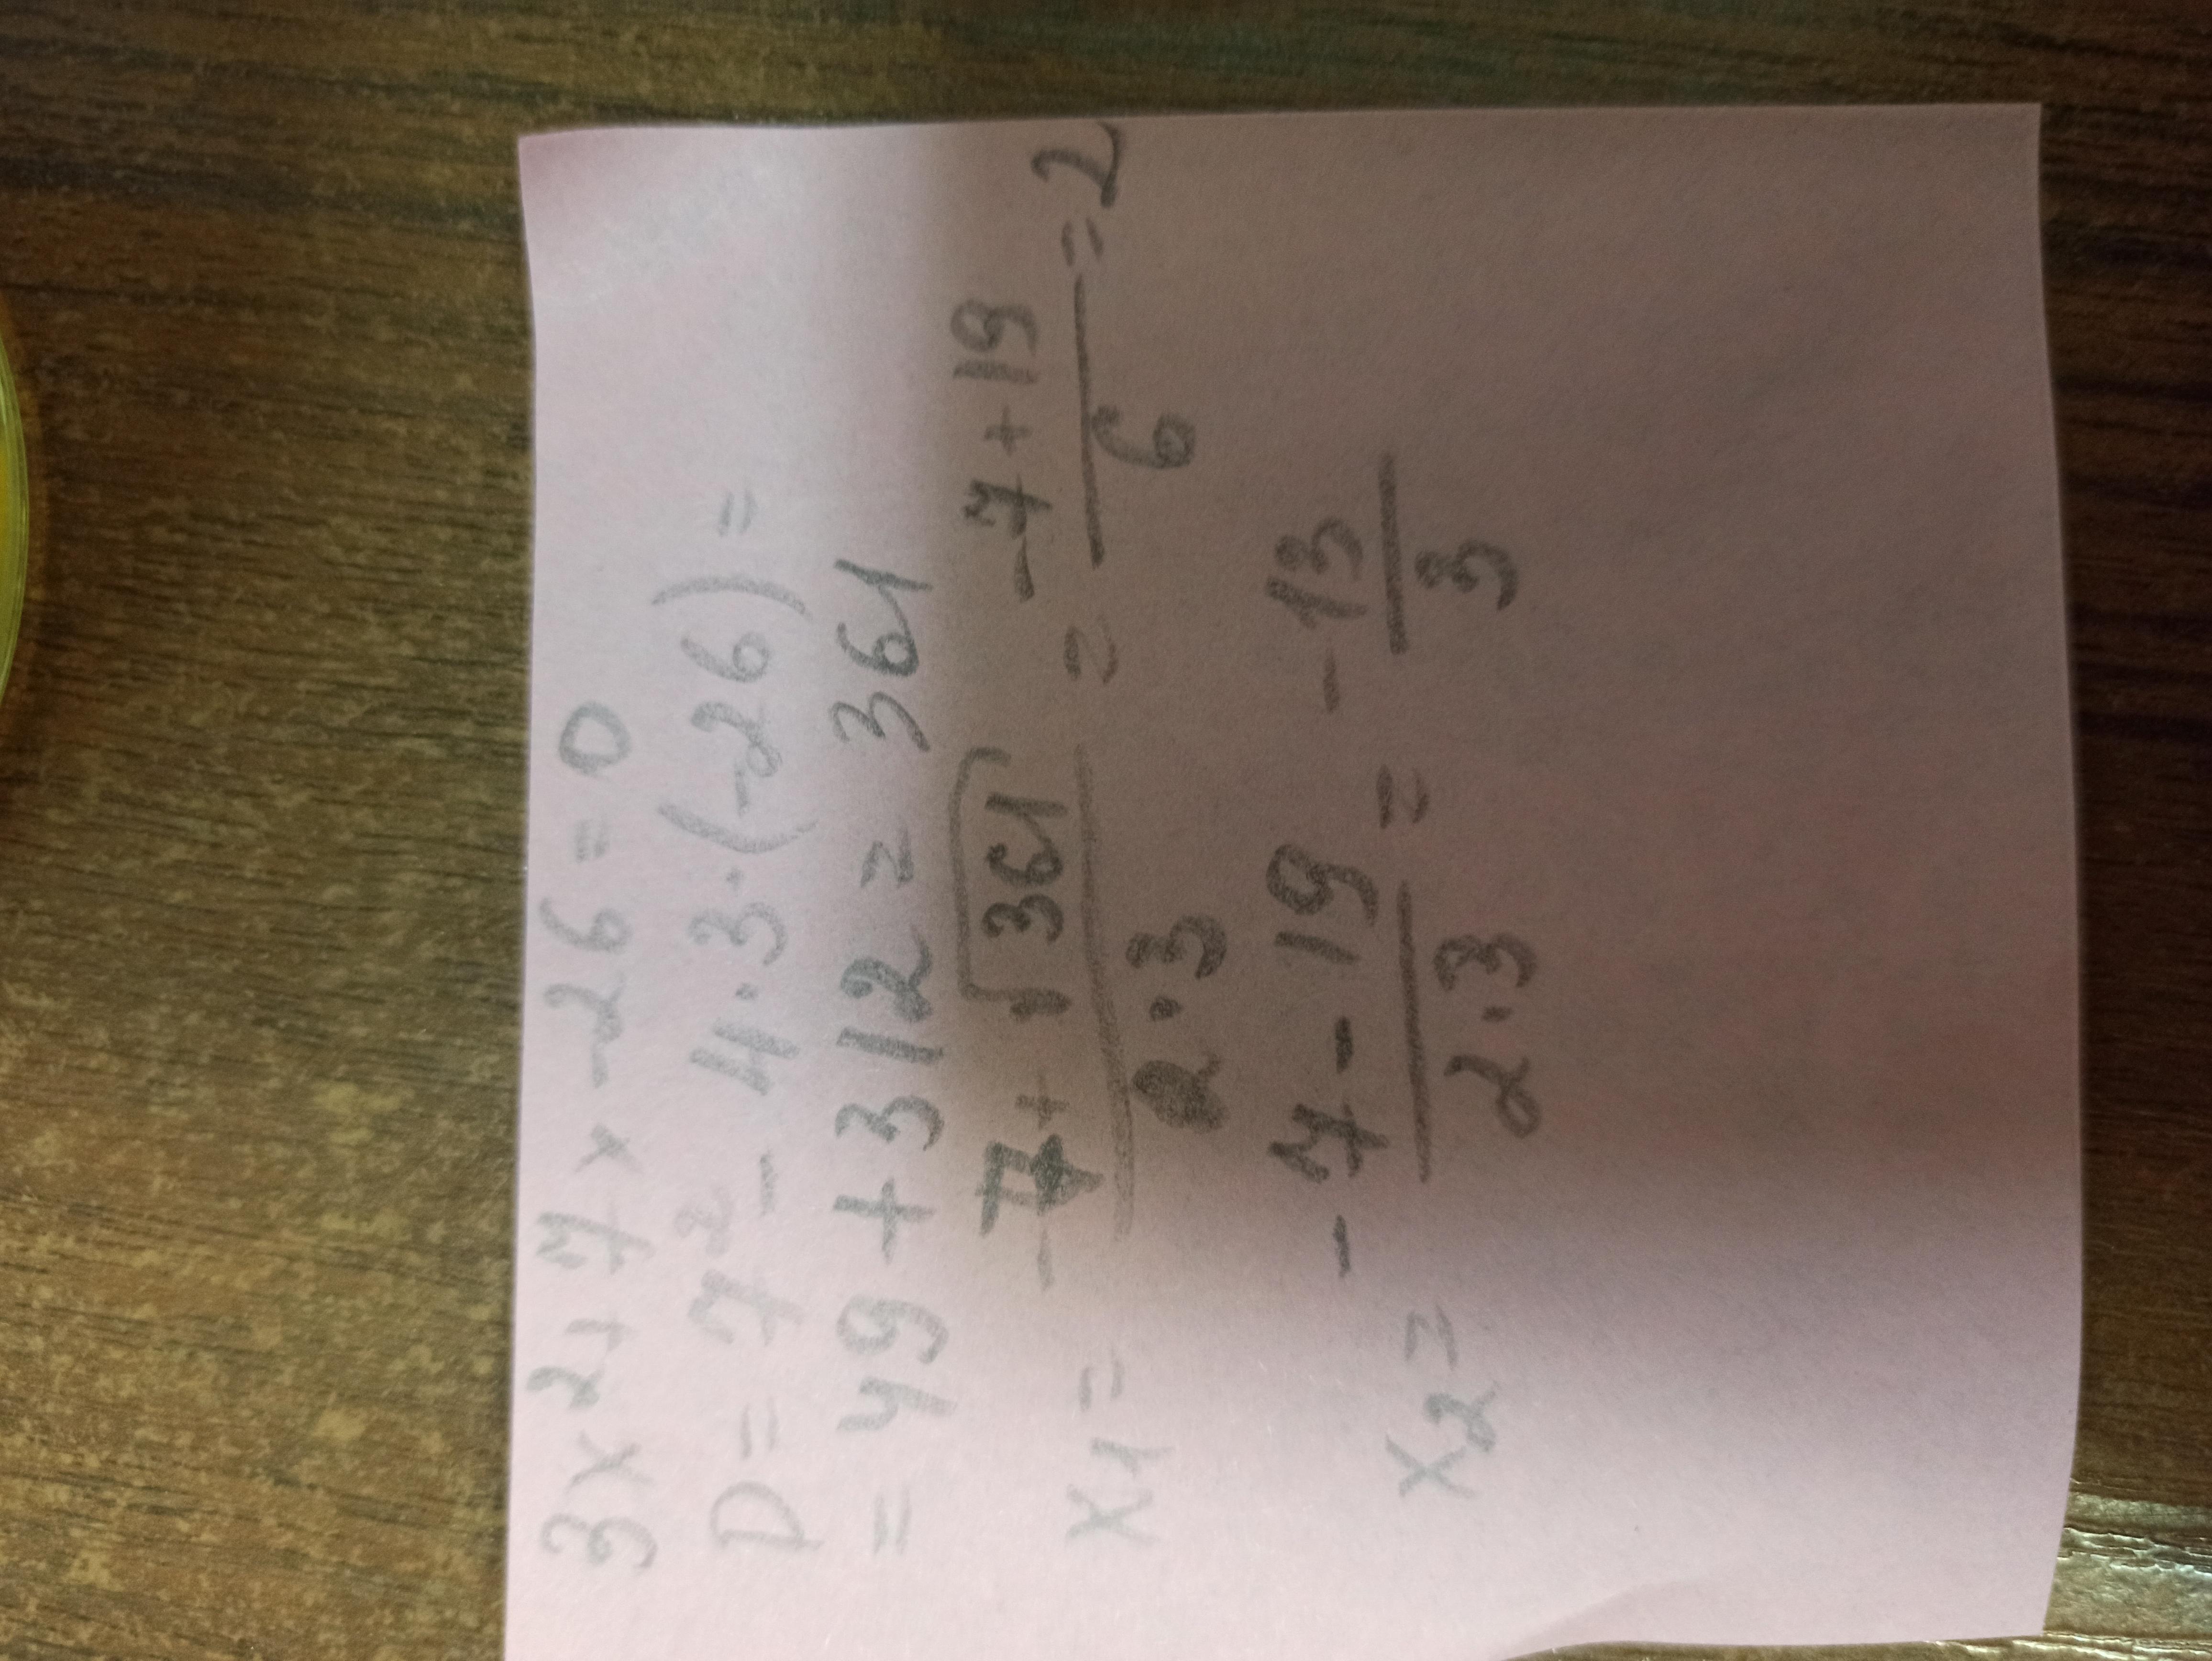 3x²+7x-26=0
D=7²-4·3·(-26)=
=49+312=361
x1=(-7+√361)/(2·3)=(-7+19)/6=2
x2=(-7-19)/(2·3)=-13/3